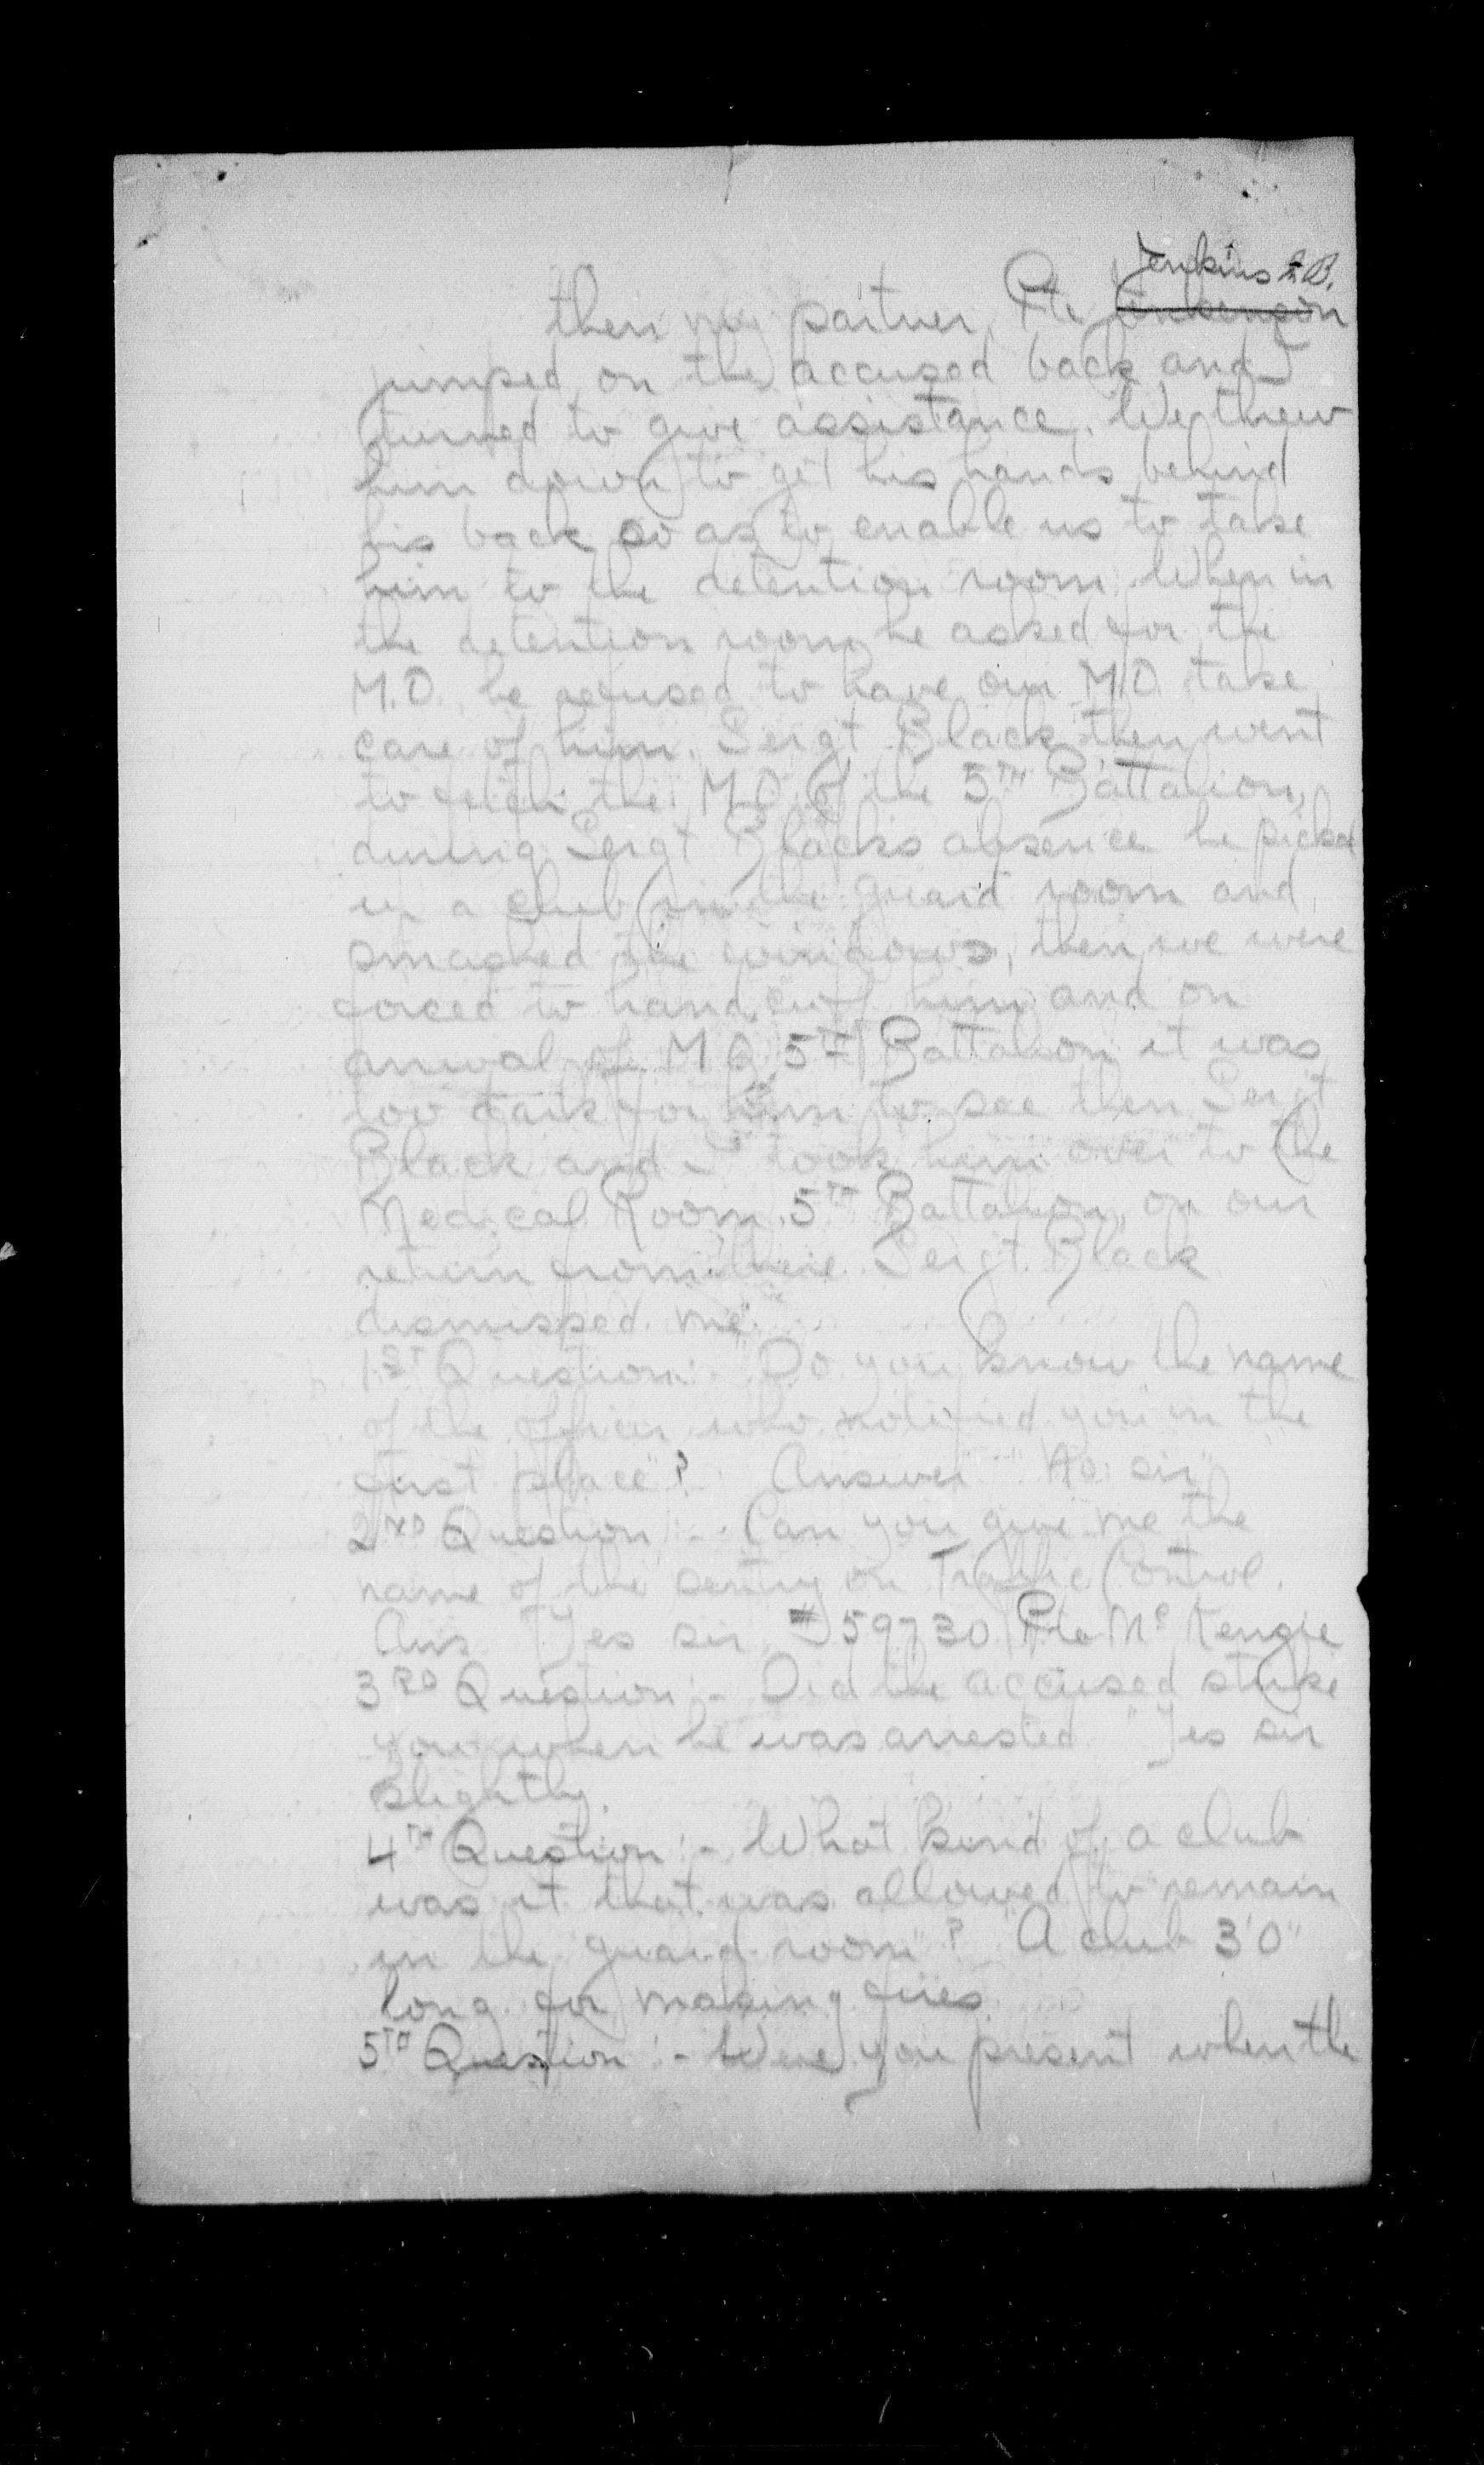 Jenkins
then my partner, Pte Jenkenson
jumped on the accused back and I
turned to give assistance. We threw
him down to get his hands behind
his back so as to enable us to take
him to the detention room. When in
the detention room he asked for the
M.O. he refused to have our M.O. take
care of him. Sergt Black then went
to fetch the M.O. of the 5TH Battalion,
during Sergt Blacks absence he picked
up a club in the guard room and
smashed the windows, then we were
forced to hand cuff him and on
arrival of M.O. 5TH Battalion it was
too dark for him to see then Sergt
Black and I took him over to the
Medical Room, 5TH Battalion, on our
return from there Sergt. Black
dismissed me."
1ST Question:- "Do you know the name
of the officer who notified you in the
first place"? Answer "No sir"
2ND Question:- Can you give me the
name of the sentry on Traffic Control.
Ans "Yes sir, #59730 Pte McKengie
3RD Question:- Did the accused strike
you when he was arrested "Yes sir
slightly.
4TH Question:- What kind of a club
was it that was allowed to remain
in the guard room"? "A club 3'0"
long for making fires
5TH Question:- Were you present when the